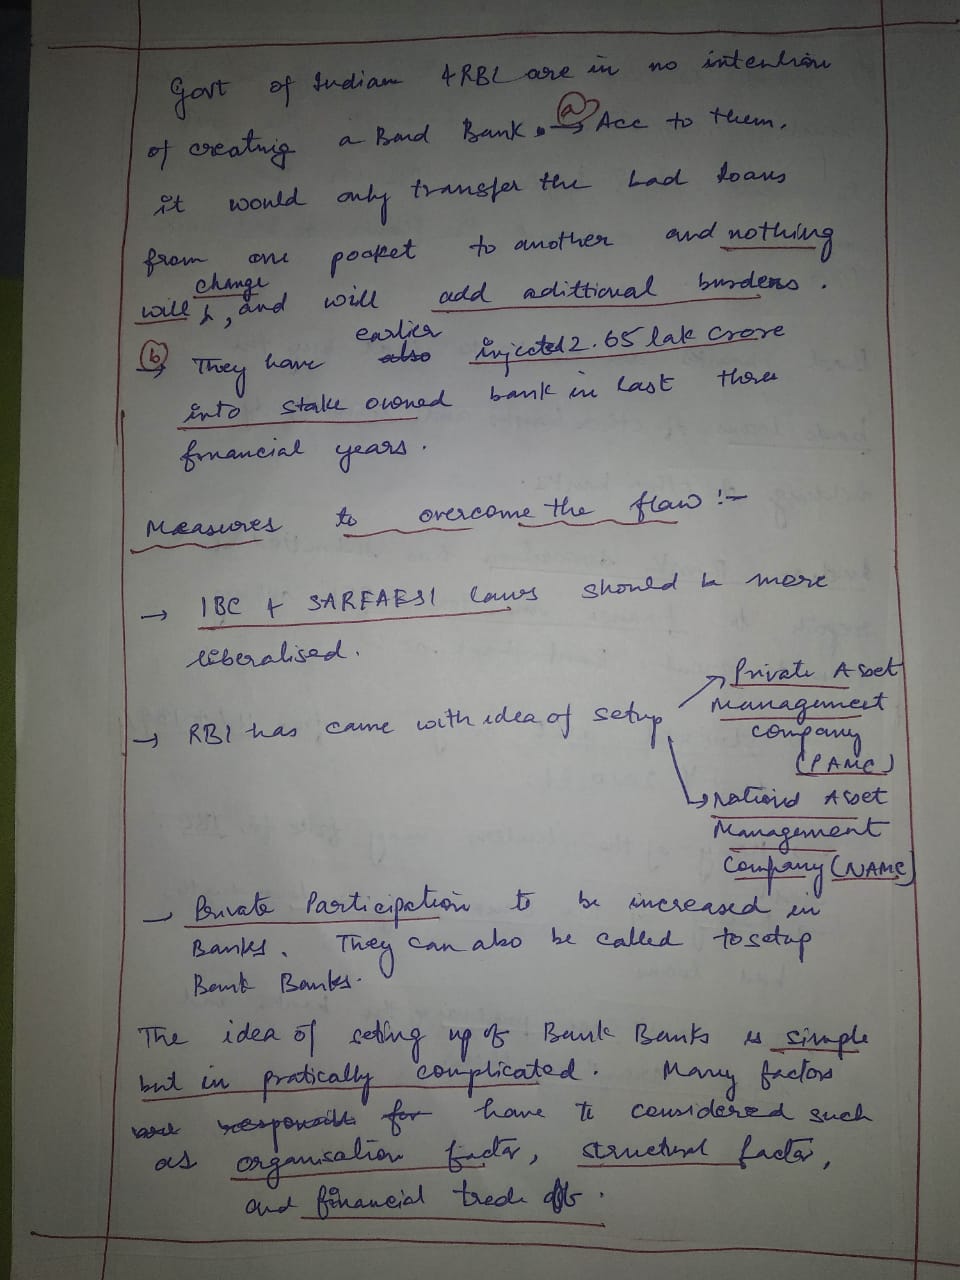 Govt of Indian & RBI are in no intention
of creatnig a Bad Bank. → (a) Acc to them,
it would only transfer the bad loans
from one pocket to another and nothing
will change, and will add adittional burdens.
(b) → They have earlier also injected 2.65 lak crore
into stake owned bank in last three
financial years.
Measures to overcome the flaw :-
→ IBC & SARFAESI laws should be more
liberalised.
→ RBI has came with idea of setup
→ Private Asset
Management
Company
(PAMC)
→ National Asset
Management
Company (NAMC)
→ Private Participation to be increased in
Banks. They can also be called to setup
Bank Banks.
The idea of seting up of Bank Banks is simple
but in pratically complicated. Many factors
are responsible for have to considered such
as organisation factor, structural factor,
and financial trade offs.